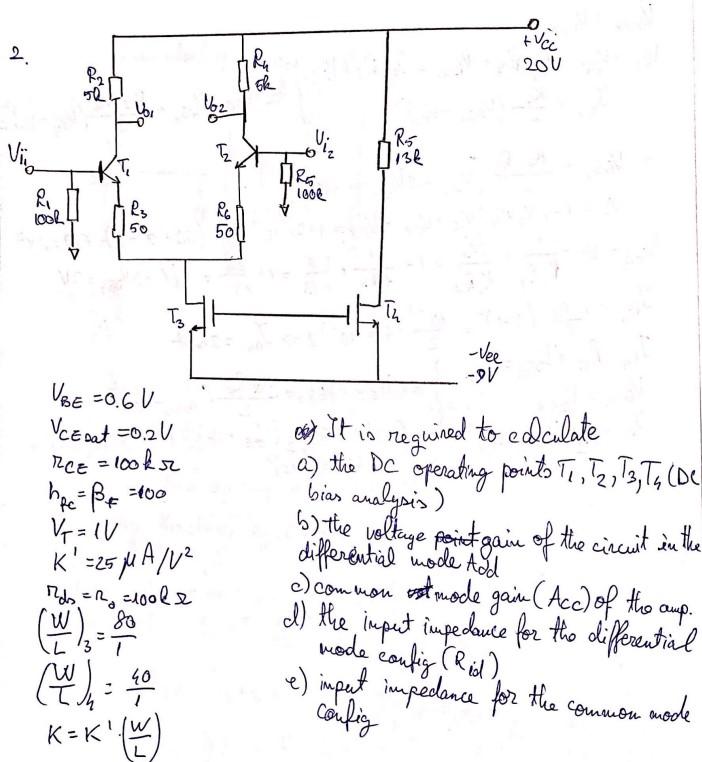 2.
+Vcc
20V
R2
5k
R4
5k
Vo1
Vo2
Vi1
T1
T2
Vi2
R5
13k
R1
100k
R3
50
R6
50
R5
100k
T3
T4
-Vee
-9V
VBE = 0.6 V
VCEsat = 0.2V
rCE = 100kΩ
hfe = βF = 100
VT = 1V
K' = 25 μA/V²
rds = ro = 100kΩ
(W/L)3 = 80/1
(W/L)4 = 40/1
K = K' · (W/L)
It is required to calculate
a) the DC operating points T1, T2, T3, T4 (DC
bias analysis)
b) the voltage gain of the circuit in the
differential mode Add
c) common mode gain (Acc) of the amp.
d) the input impedance for the differential
mode config (Rid)
e) input impedance for the common mode
config